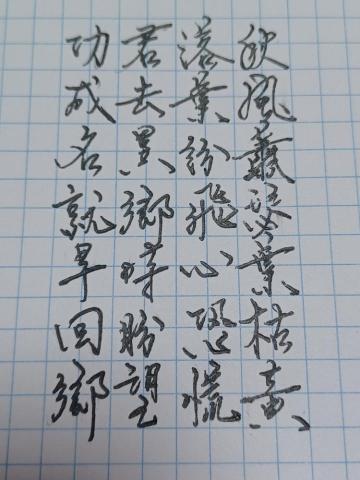 秋風轟竪葉枯黃
落葉紛飛心恐慌
君去異鄉時盼望
功成名就早回鄉